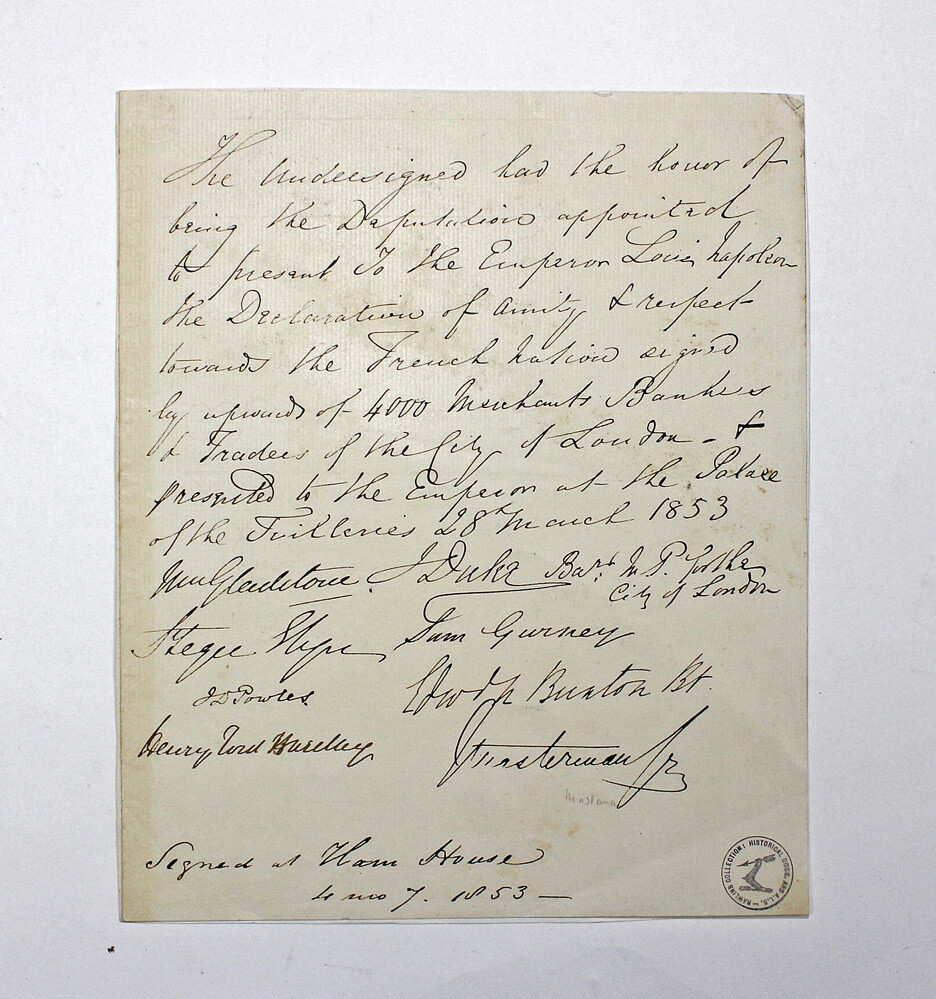 The Undersigned had the honor of
being the Deputation appointed
to present to the Emperor Louis Napoleon
the Declaration of Amity & respect
towards the French Nation signed
by upwards of 4000 Merchants Bankers
& Traders of the City of London - &
presented to the Emperor at the Palace
of the Tuilleries 28th March 1853
Wm Gladstone J Duke Bart. M.P. for the
City of London
Sam Gurney
J D Powles. Buxton Bt.
Henry
Signed at Ham House
4 mo 7. 1853 —
RAWLINS COLLECTION: HISTORICAL DOCS. AND A.L.S.